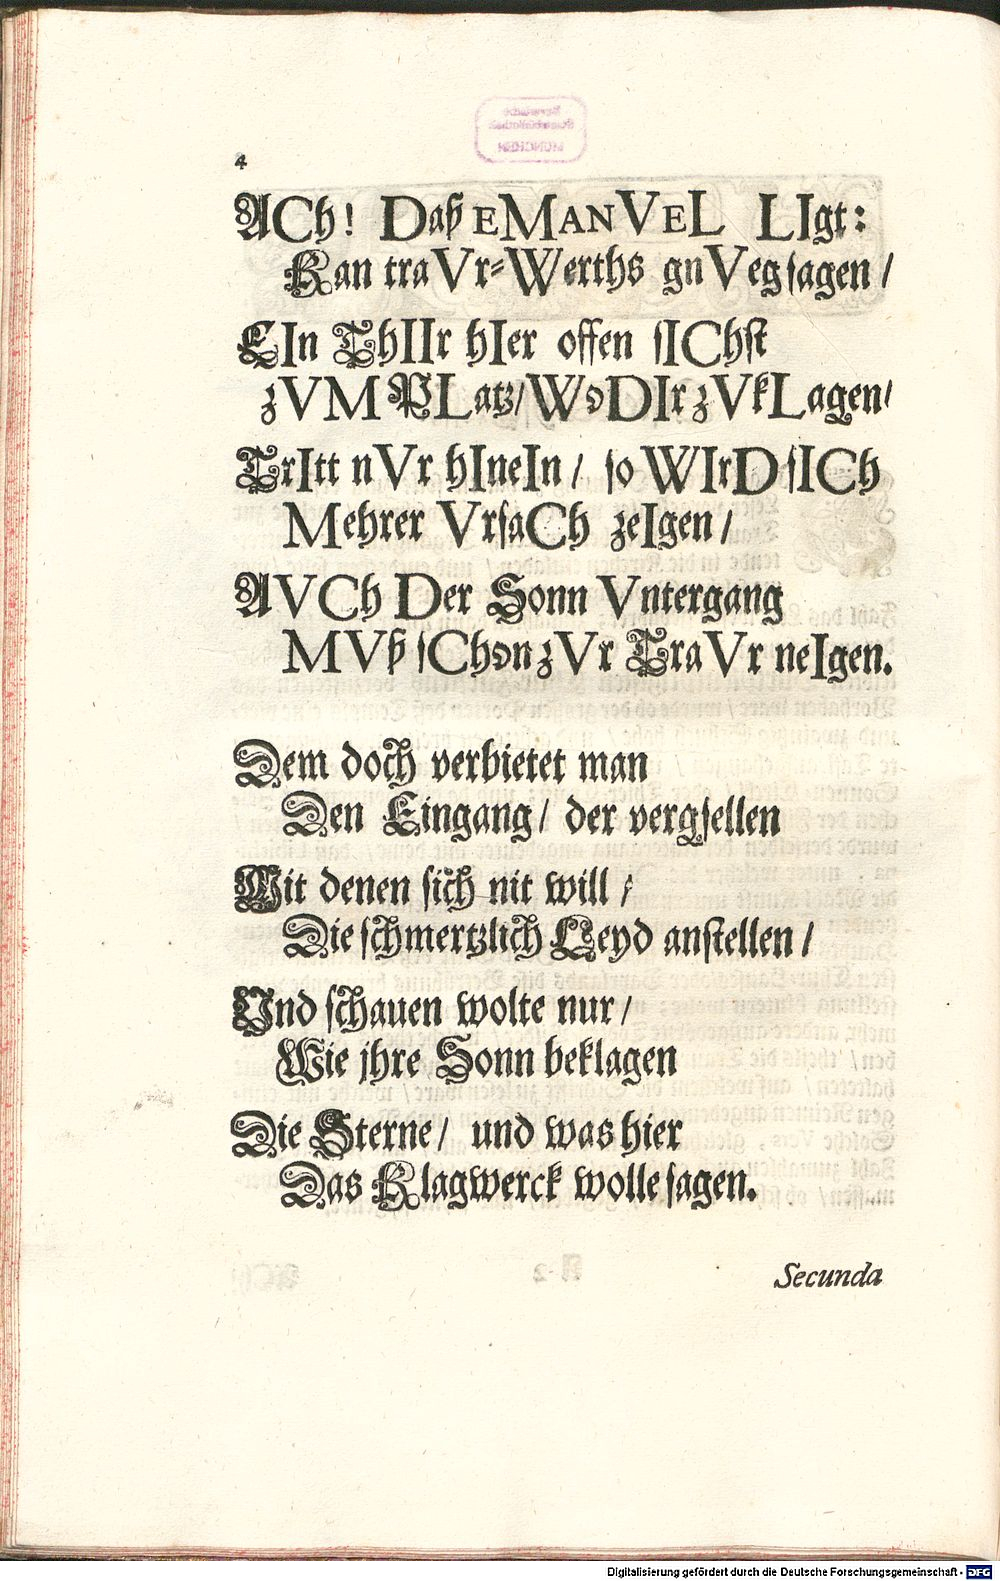 4
ACh! Daß eMANVeL LIgt:
Kan traVr-Werths gnVeg sagen /
EIn ThIIr hIer offen sIChst
zVM PLatz / Wo DIr zVkLagen /
TrItt nVr hIneIn / so WIrD sICh
Mehrer VrsaCh zeIgen /
AVCh Der Sonn Vntergang
MVß sChon zVr TraVr neIgen.
Dem doch verbietet man
Den Eingang / der vergsellen
Mit denen sich nit will /
Die schmertzlich Leyd anstellen /
Und schauen wolte nur /
Wie jhre Sonn beklagen
Die Sterne / und was hier
Das Klagwerck wolle sagen.
Secunda
Digitalisierung gefördert durch die Deutsche Forschungsgemeinschaft - DFG